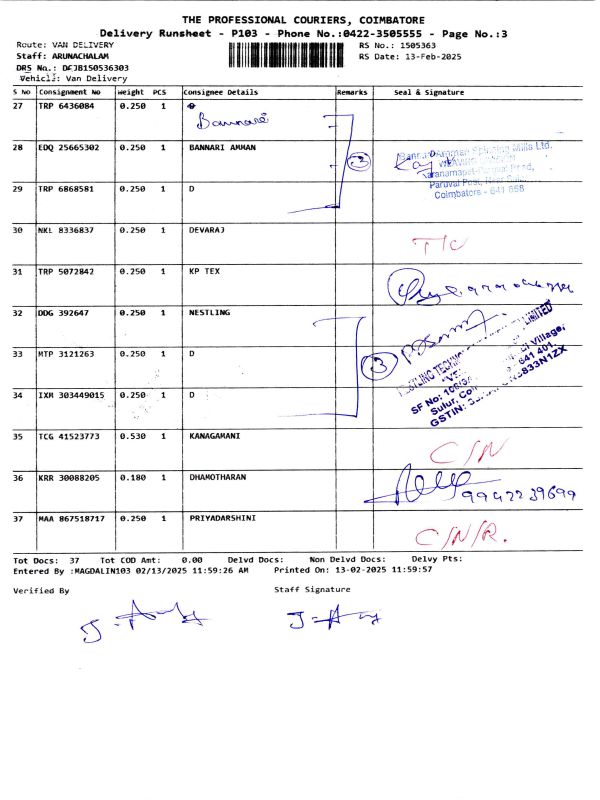 THE PROFESSIONAL COURIERS, COIMBATORE
Delivery Runsheet - P103 - Phone No.:0422-3505555 - Page No.:3
Route: VAN DELIVERY RS No.: 1505363
Staff: ARUNACHALAM RS Date: 13-Feb-2025
DRS No.: DFJB150536303
Vehicle: Van Delivery
S No Consignment No Weight PCS Consignee Details Remarks Seal & Signature
27 TRP 6436084 0.250 1 Bannari
28 EDQ 25665302 0.250 1 BANNARI AMMAN 3 Mills Ltd.
29 TRP 6868581 0.250 1 D Paruval Post,
Coimbatore - 641 658
30 NKL 8336837 0.250 1 DEVARAJ T/C
31 TRP 5072842 0.250 1 KP TEX
32 DDG 392647 0.250 1 NESTLING LIMITED
33 MTP 3121263 0.250 1 D 3 Village,
34 IXM 303449015 0.250 1 D SF No:
Sulur, 641 401
GSTIN:
35 TCG 41523773 0.530 1 KANAGAMANI C/N
36 KRR 30088205 0.180 1 DHAMOTHARAN 9942239699
37 MAA 867518717 0.250 1 PRIYADARSHINI C/N/R.
Tot Docs: 37 Tot COD Amt: 0.00 Delvd Docs: Non Delvd Docs: Delvy Pts:
Entered By :MAGDALIN103 02/13/2025 11:59:26 AM Printed On: 13-02-2025 11:59:57
Verified By Staff Signature